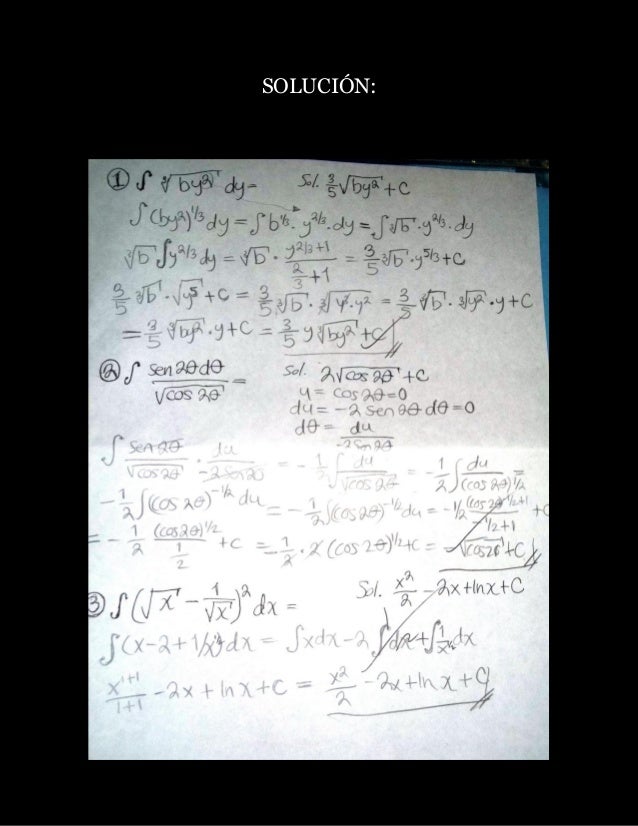 SOLUCIÓN:
① ∫ ∛by² dy = Sol. 3/5 √by² + C
∫(by²)^1/3 dy = ∫b^1/3 · y^2/3 · dy = ∫∛b · y^2/3 · dy
∛b ∫y^2/3 dy = ∛b · y^(2/3+1)/(2/3+1) = 3/5 ∛b · y^5/3 + C
3/5 ∛b · √y⁵ + C = 3/5 ∛b · ∛y³·y² = 3/5 ∛b · ∛y² · y + C
= 3/5 ∛by² · y + C = 3/5 y ∛by² + C
② ∫ sen 2θ dθ / √cos 2θ = Sol. 2√cos 2θ + C
u = cos 2θ = 0
du = -2 sen 2θ dθ = 0
dθ = du / -2 Sen 2θ
∫ sen 2θ / √cos 2θ · du / -2 Sen 2θ = -1/2 ∫ du / √cos 2θ = -1/2 ∫ du / (cos 2θ)^1/2 =
-1/2 ∫(cos 2θ)^-1/2 du = -1/2 ∫(cos 2θ)^-1/2 du = -1/2 (cos 2θ)^(-1/2+1) / (-1/2+1) + C
= -1/2 (cos 2θ)^1/2 / (1/2) + C = -1/2 · 2 (cos 2θ)^1/2 + C = -√cos 2θ + C
③ ∫(√x - 1/√x)² dx = Sol. x²/2 - 2x + ln x + C
∫(x - 2 + 1/x) dx = ∫x dx - 2∫dx + ∫1/x dx
x^(1+1)/(1+1) - 2x + ln x + C = x²/2 - 2x + ln x + C